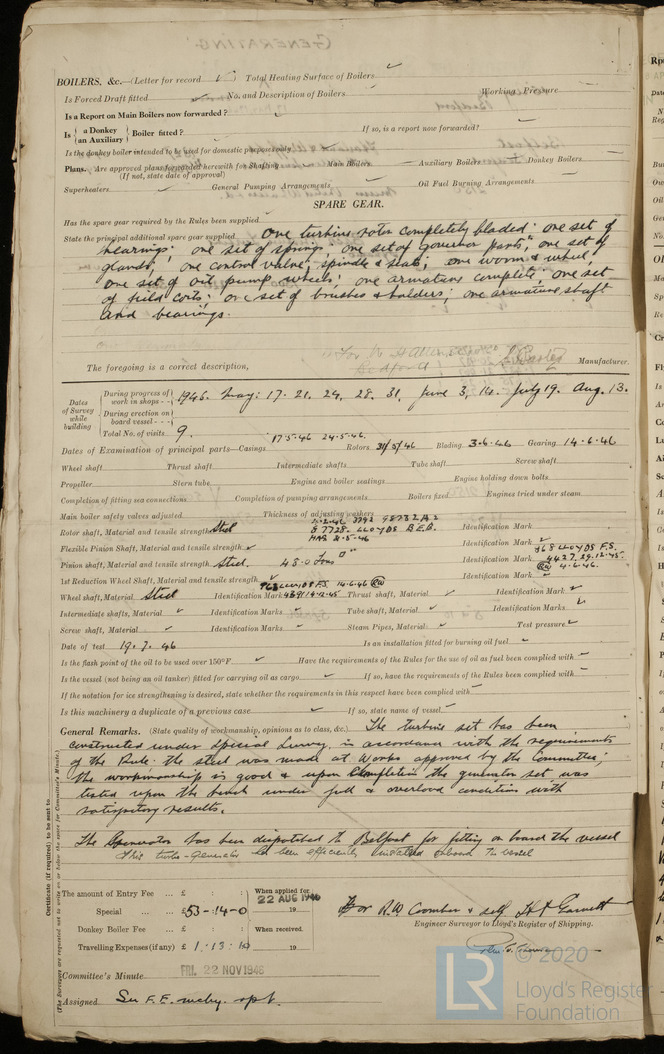 BOILERS, &c.—(Letter for record ✓) Total Heating Surface of Boilers ✓
Is Forced Draft fitted No. and Description of Boilers Working Pressure
Is a Report on Main Boilers now forwarded?
Is { a Donkey / an Auxiliary } Boiler fitted? If so, is a report now forwarded?
Is the donkey boiler intended to be used for domestic purposes only
Plans. Are approved plans forwarded herewith for Shafting Main Boilers Auxiliary Boilers Donkey Boilers
(If not, state date of approval)
Superheaters General Pumping Arrangements Oil Fuel Burning Arrangements
SPARE GEAR.
Has the spare gear required by the Rules been supplied
State the principal additional spare gear supplied One turbine rotor completely bladed; one set of
bearings; one set of springs; one set of governor parts; one set of
glands; one control valve, spindle & seat; one worm & wheel;
one set of oil pump wheels; one armature complete; one set
of field coils; one set of brushes & holders; one armature shaft
and bearings.
The foregoing is a correct description, Bedford Manufacturer.
Dates of Survey while building
During progress of work in shops - - 1946. May: 17. 21. 24. 28. 31. June 3, 14. July 19. Aug. 13.
During erection on board vessel - - -
Total No. of visits 9.
Dates of Examination of principal parts—Casings 17-5-46 24-5-46. Rotors 31/5/46 Blading 3-6-46 Gearing 14-6-46
Wheel shaft Thrust shaft Intermediate shafts Tube shaft Screw shaft
Propeller Stern tube Engine and boiler seatings Engine holding down bolts
Completion of fitting sea connections Completion of pumping arrangements Boilers fixed Engines tried under steam
Main boiler safety valves adjusted Thickness of adjusting washers
Rotor shaft, Material and tensile strength Steel G 7728. LLOYDS B.E.B. Identification Mark
Flexible Pinion Shaft, Material and tensile strength ✓ Identification Mark ✓
Pinion shaft, Material and tensile strength Steel. 48.0 Tons □" Identification Mark 968 LLOYDS F.S. 4427 29.12.45. RW 4.6.46.
1st Reduction Wheel Shaft, Material and tensile strength Identification Mark ✓
Wheel shaft, Material Steel Identification Mark 968 LLOYDS F.S. 14-6-46 RW 4391 14-12-45 Thrust shaft, Material ✓ Identification Mark ✓
Intermediate shafts, Material ✓ Identification Marks ✓ Tube shaft, Material ✓ Identification Marks ✓
Screw shaft, Material ✓ Identification Marks ✓ Steam Pipes, Material ✓ Test pressure ✓
Date of test 19. 7. 46 Is an installation fitted for burning oil fuel ✓
Is the flash point of the oil to be used over 150°F ✓ Have the requirements of the Rules for the use of oil as fuel been complied with
Is the vessel (not being an oil tanker) fitted for carrying oil as cargo ✓ If so, have the requirements of the Rules been complied with
If the notation for ice strengthening is desired, state whether the requirements in this respect have been complied with
Is this machinery a duplicate of a previous case ✓ If so, state name of vessel ✓
General Remarks. (State quality of workmanship, opinions as to class, &c.) The turbine set has been
constructed under special Survey, in accordance with the requirements
of the Rule: the steel was made at Works approved by the Committee:
the workmanship is good & upon completion the generator set was
tested upon the bench under full & overload condition with
satisfactory results.
The Generator has been dispatched to Belfast for fitting on board the vessel
This turbo-Generator has been efficiently installed onboard the vessel
Certificate (if required) to be sent to
(The Surveyors are requested not to write on or below the space for Committee's Minute.)
The amount of Entry Fee ... £ : : When applied for 22 AUG 1946
Special ... ... £ 53-14-0 19
Donkey Boiler Fee ... £ : : When received.
Travelling Expenses (if any) £ 1 : 13 : 10 19
For R.W. Coomber & self
Engineer Surveyor to Lloyd's Register of Shipping.
Committee's Minute FRI. 22 NOV 1946
Assigned See F.E. mchy. rpt.
© 2020
LR
Lloyd's Register
Foundation